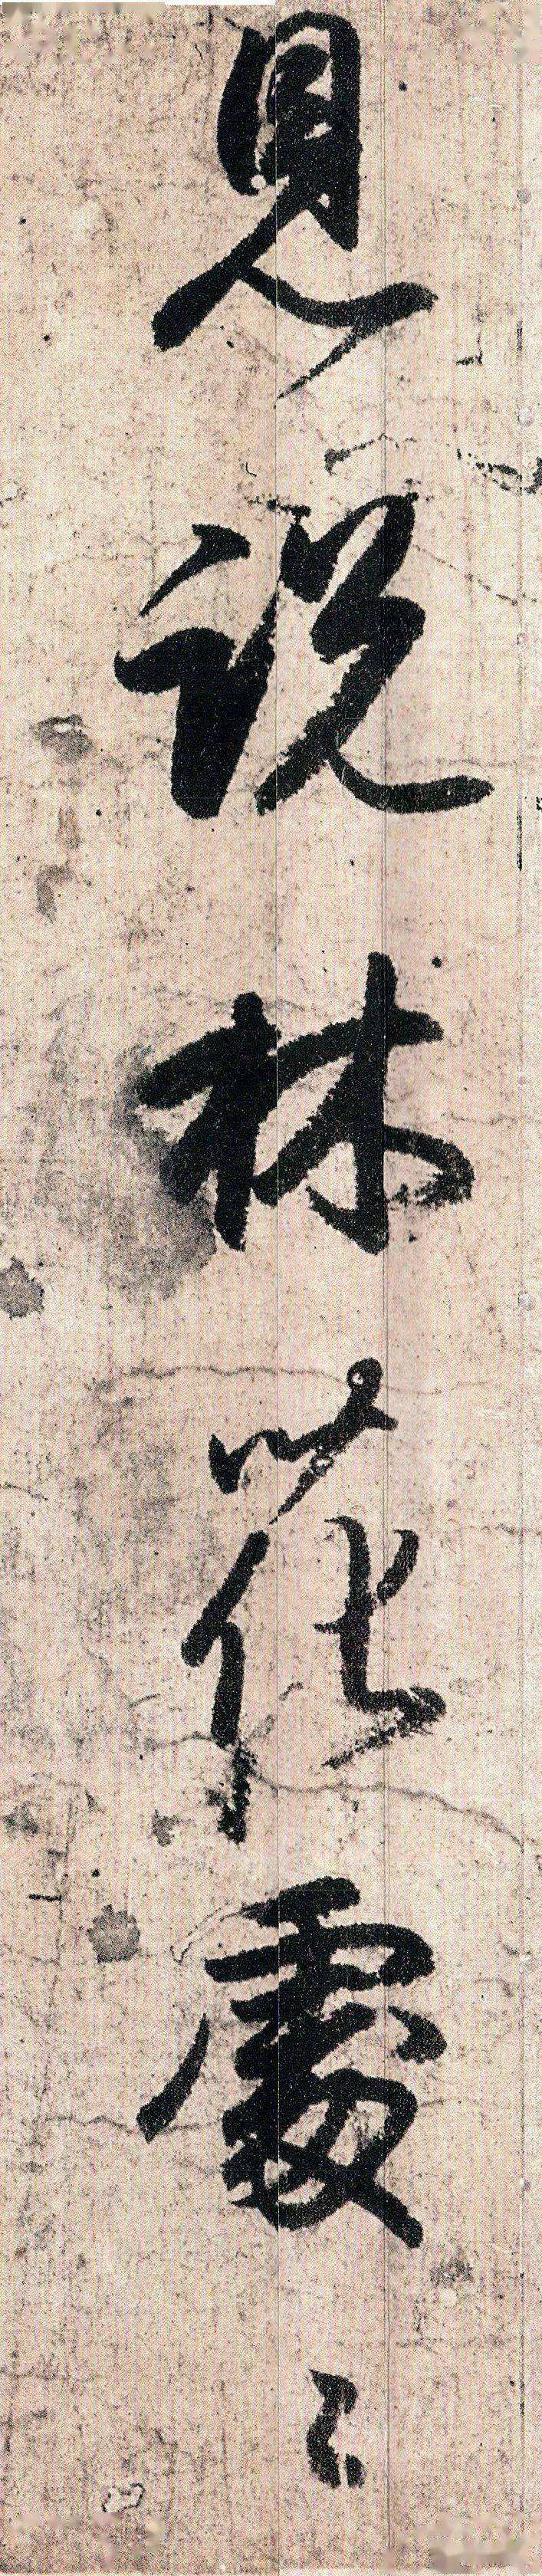 見說林花處々